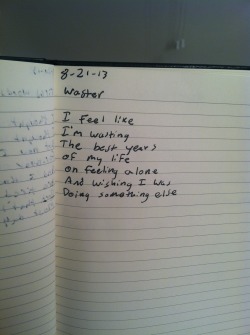 8-21-13
Waster
I feel like
I'm waiting
The best years
of my life
on feeling alone
And wishing I was
Doing something else